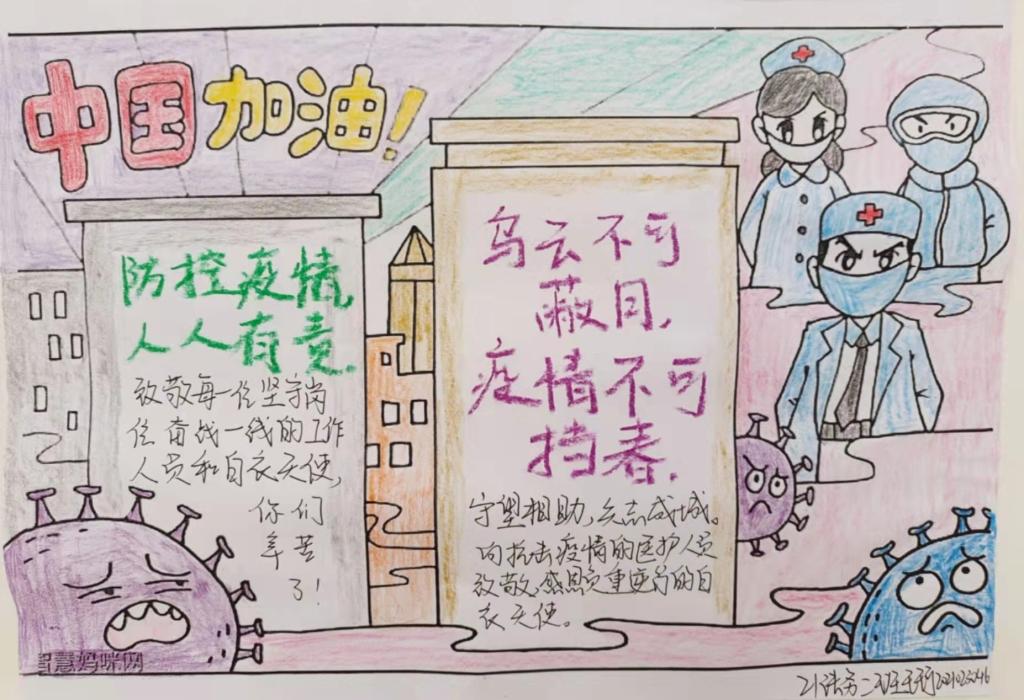 中国加油!
防控疫情,
人人有责.
致敬每一位坚守岗
位奋战一线的工作
人员和白衣天使,
你们
辛苦
了!
乌云不可
蔽日,
疫情不可
挡春.
守望相助,众志成城。
向抗击疫情的医护人员
致敬,感恩负重前行的白
衣天使。
智慧妈咪网